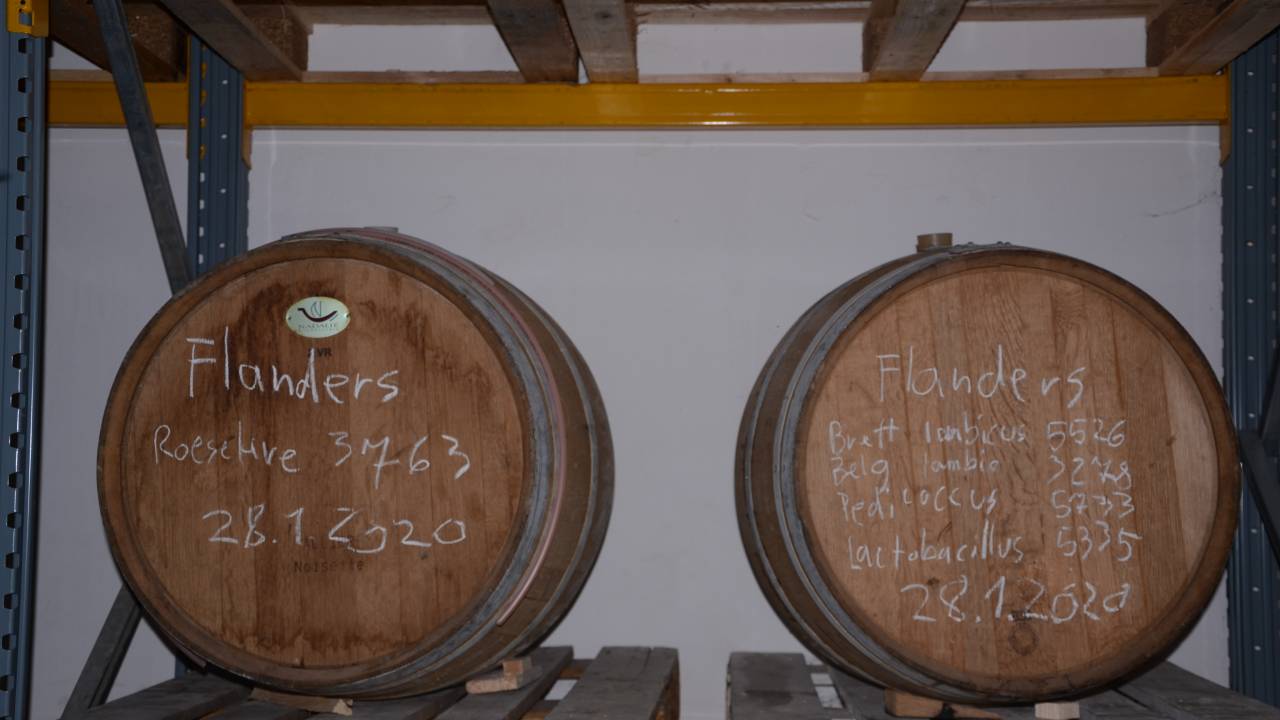 NADALIE
VR
Flanders
Roeselare 3763
28.1.2020
Noisette
Flanders
Brett lambicus 5526
Belg lambic 3278
Pediococcus 5733
Lactobacillus 5335
28.1.2020